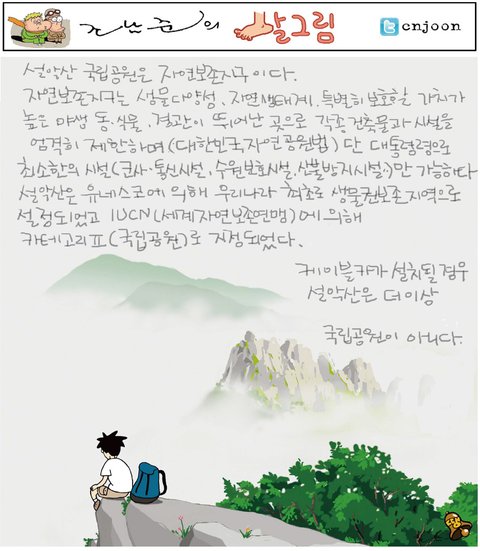 전남준의 발그림 cnjoon
설악산 국립공원은 자연보존지구이다.
자연보존지구는 생물다양성, 자연생태계, 특별히 보호할 가치가
높은 야생 동·식물, 경관이 뛰어난 곳으로 각종 건축물과 시설을
엄격히 제한하며 (대한민국자연공원법) 단 대통령령으로
최소한의 시설(군사·통신시설, 수원보호시설, 산불방지시설..)만 가능하다
설악산은 유네스코에 의해 우리나라 최초로 생물권보존지역으로
설정되었고 IUCN(세계자연보존연맹)에 의해
카테고리Ⅱ(국립공원)로 지정되었다.
케이블카가 설치될 경우
설악산은 더이상
국립공원이 아니다.